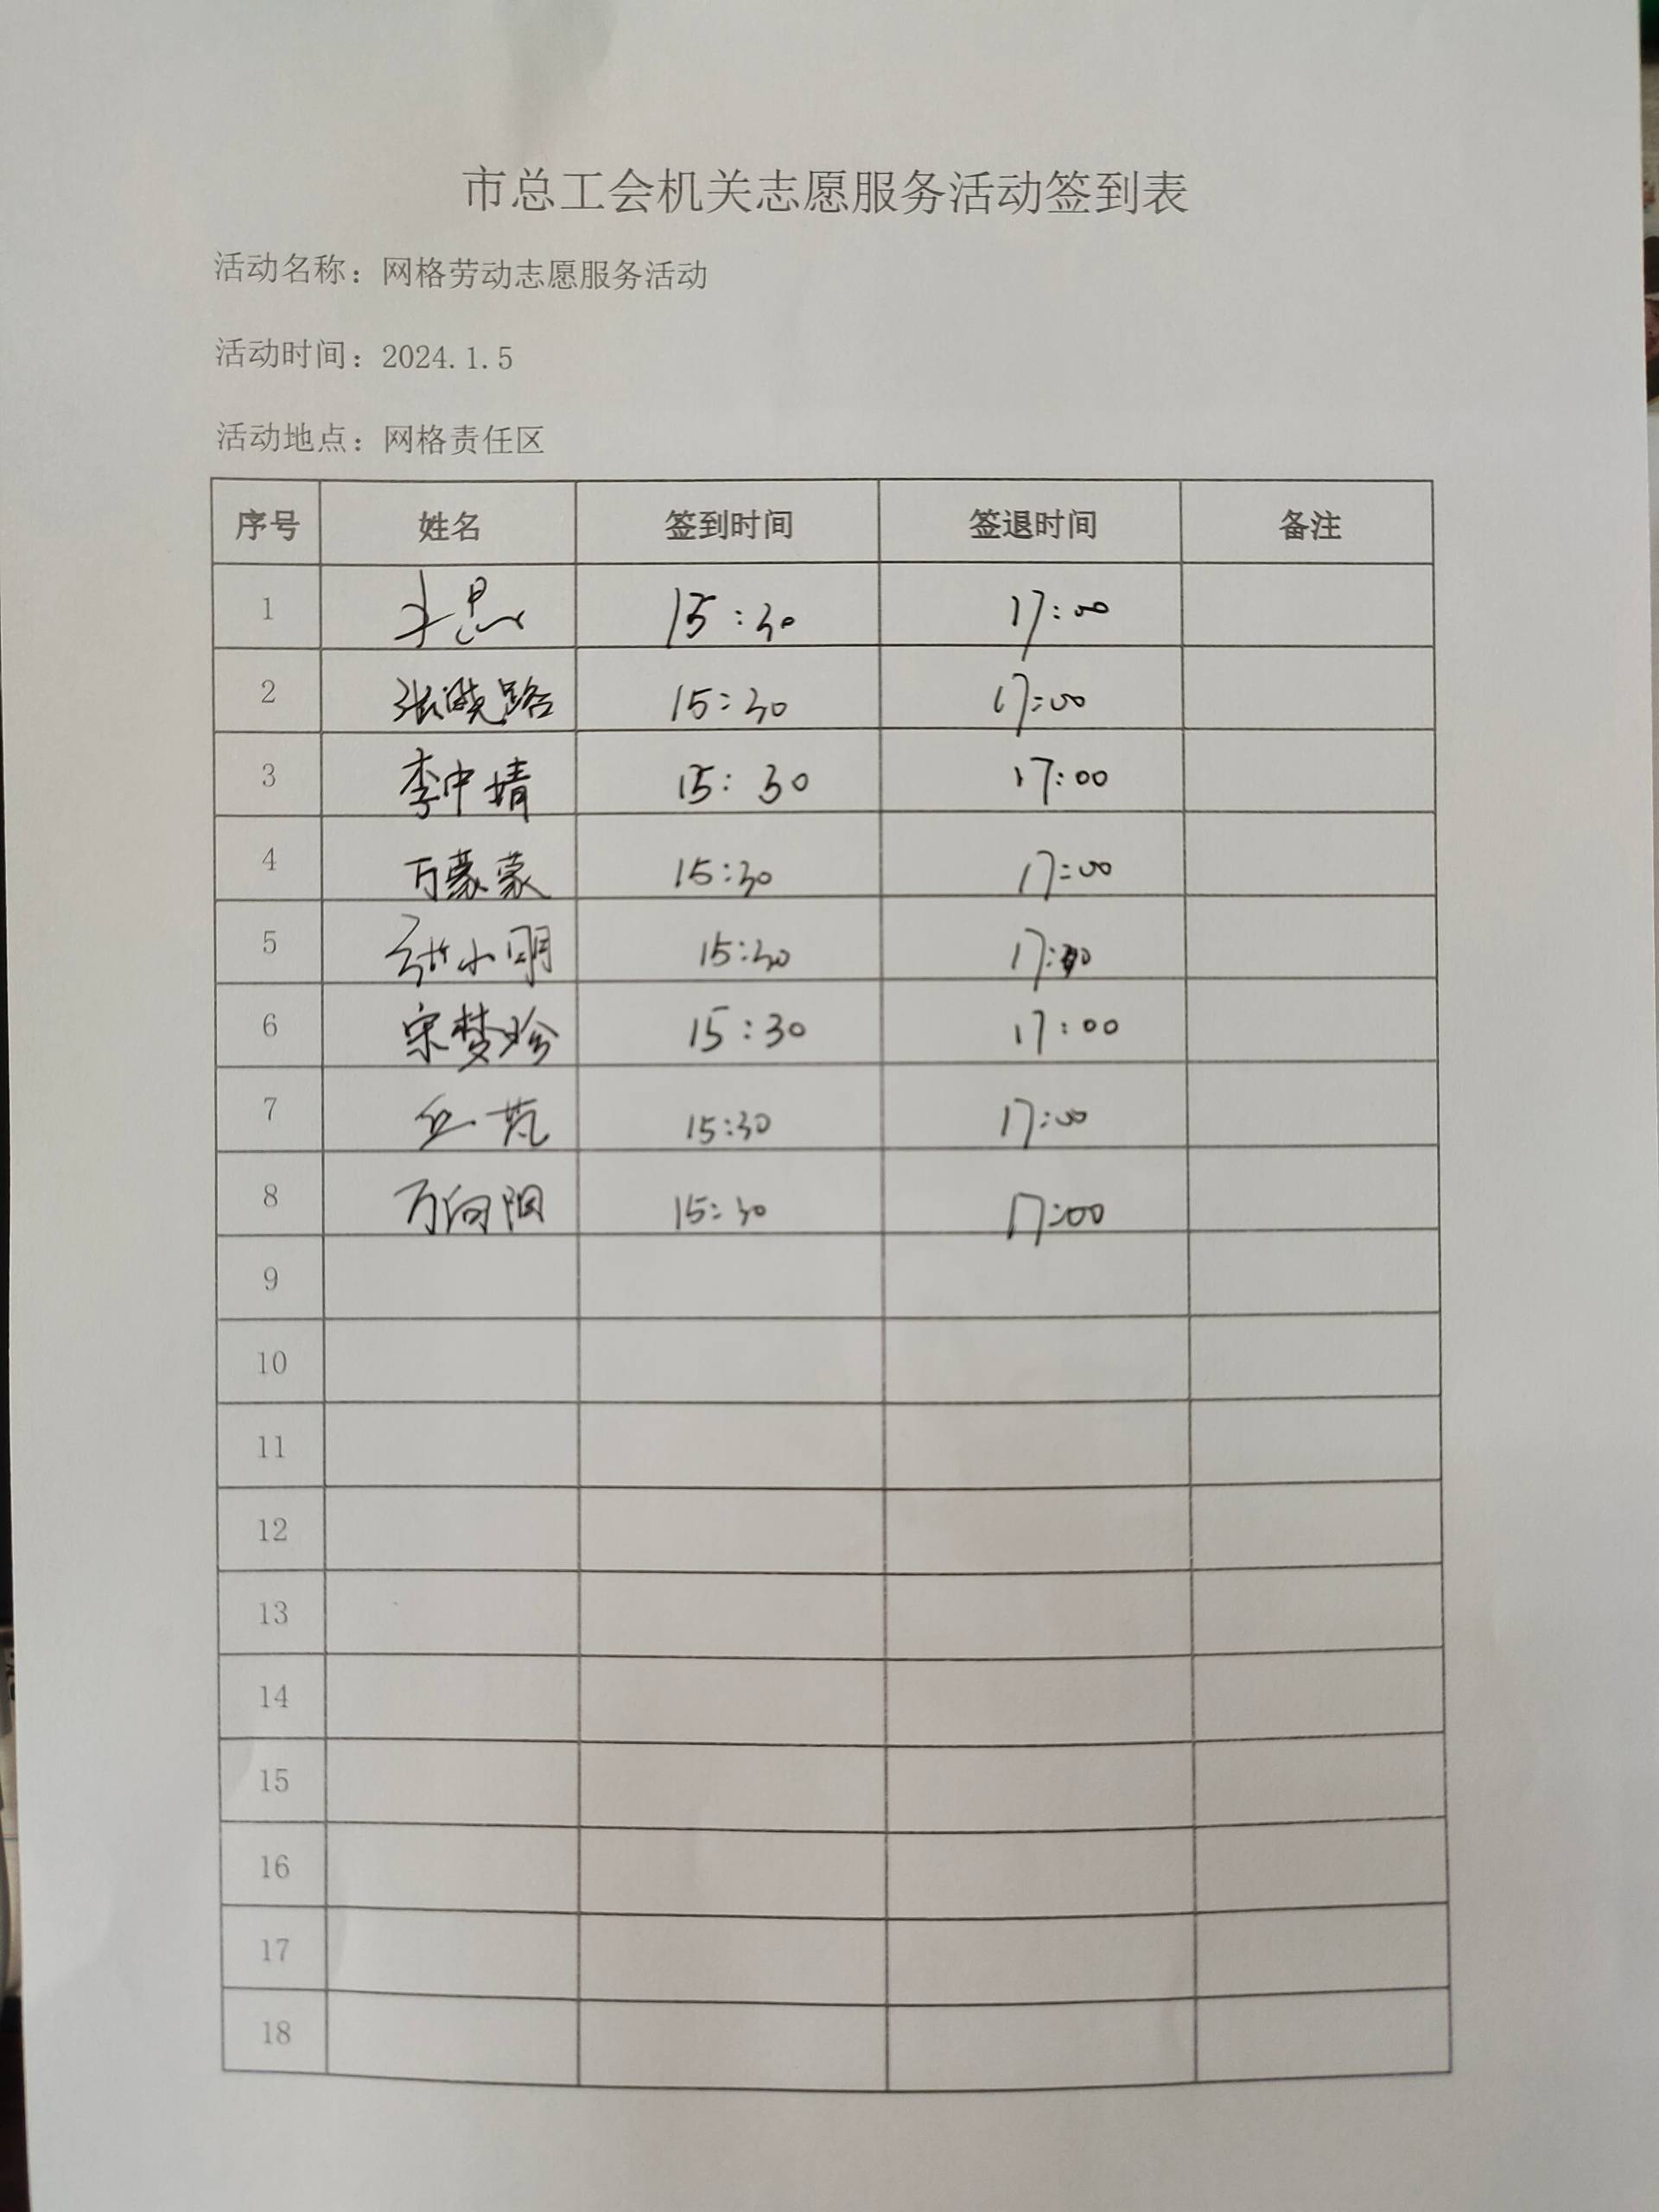 市总工会机关志愿服务活动签到表
活动名称：网格劳动志愿服务活动
活动时间：2024.1.5
活动地点：网格责任区
序号 姓名 签到时间 签退时间 备注
1 15:30 17:00
2 张晓路 15:30 17:00
3 李中婧 15:30 17:00
4 万蒙蒙 15:30 17:00
5 小明 15:30 17:00
6 宋梦珍 15:30 17:00
7 15:30 17:00
8 万向阳 15:30 17:00
9
10
11
12
13
14
15
16
17
18